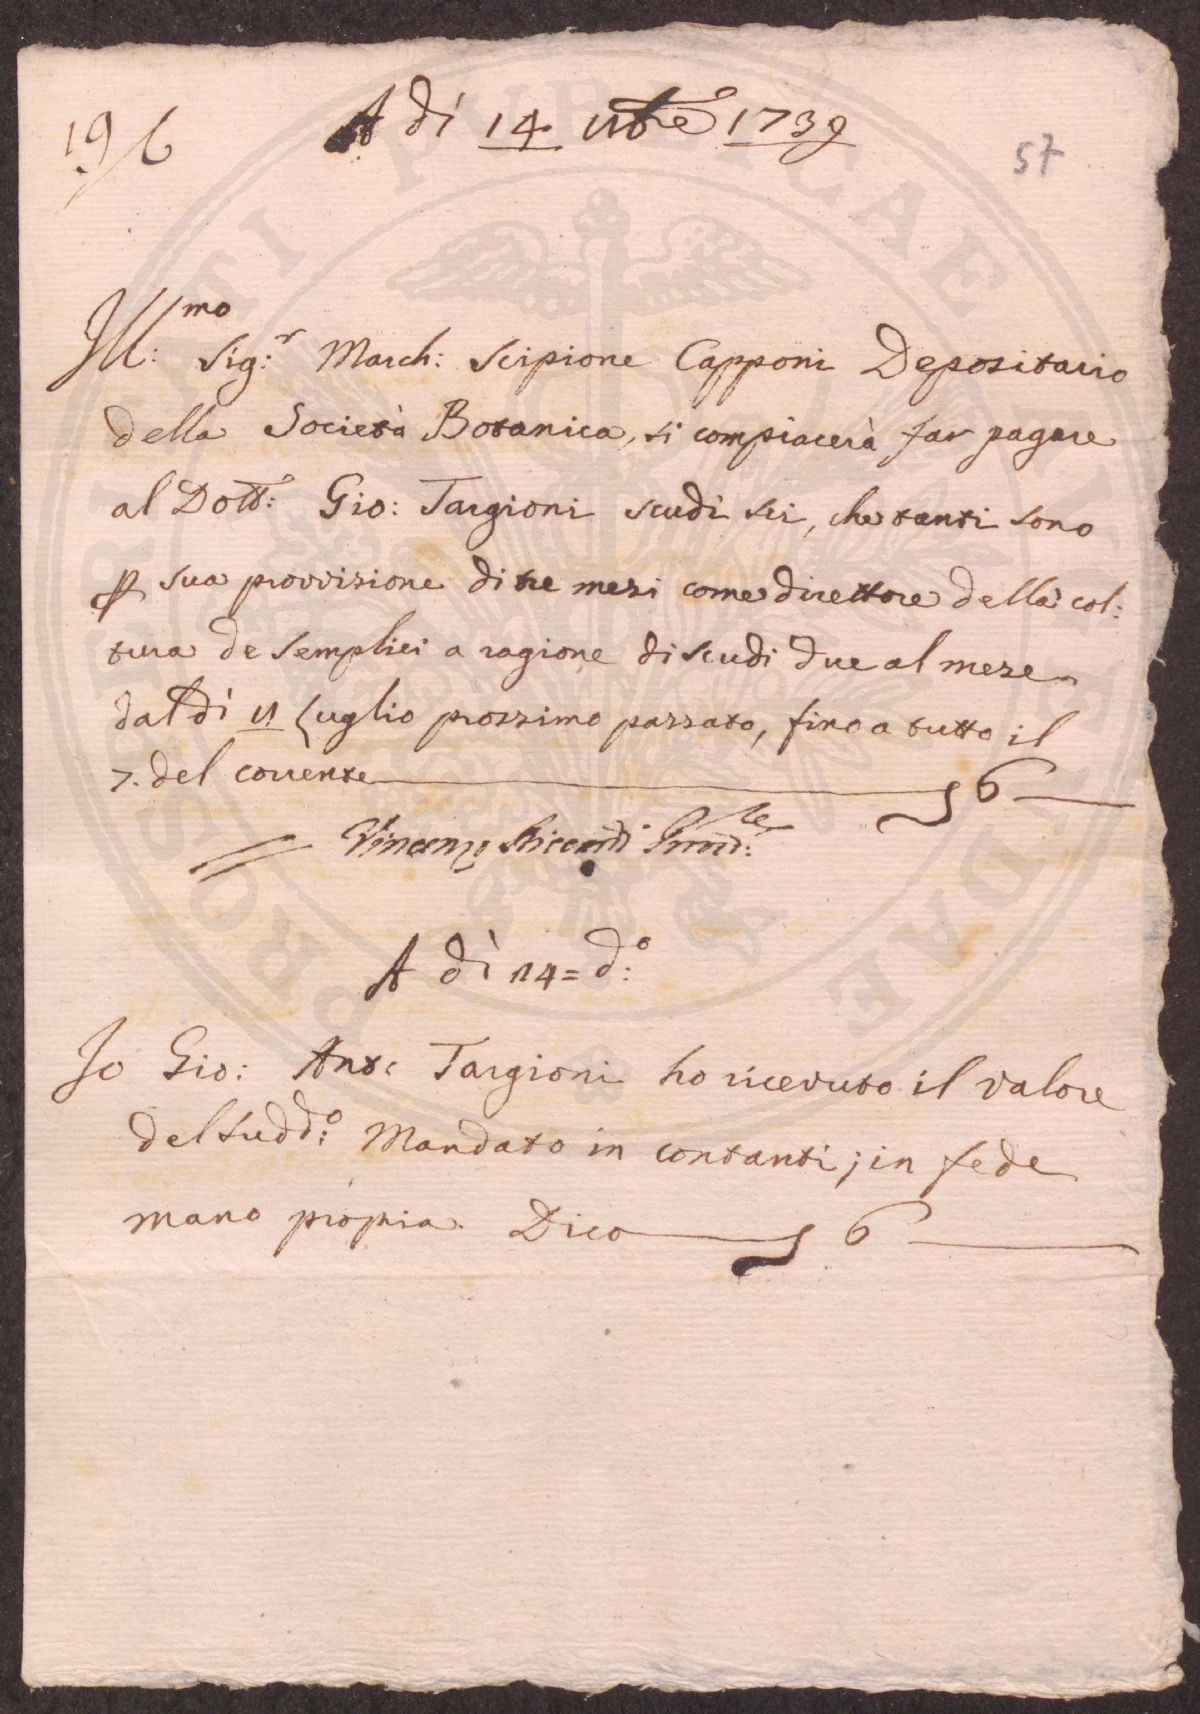 19/6
A dì 14 9bre 1739
57
Ill:mo Sig:r March: Scipione Capponi Depositario
della Società Botanica, si compiacerà far pagare
al Dott: Gio: Targioni scudi sei, che tanti sono
p sua provvisione di tre mesi come direttore della col:
tura de semplici a ragione di scudi due al mese
dal dì Luglio prossimo passato, fino a tutto il
7. del corrente 6
Vincenzo
A dì 14 = d:o
Io Gio: Ant: Targioni ho ricevuto il valore
del sudd:o Mandato in contanti; in fede
mano propria Dico 6